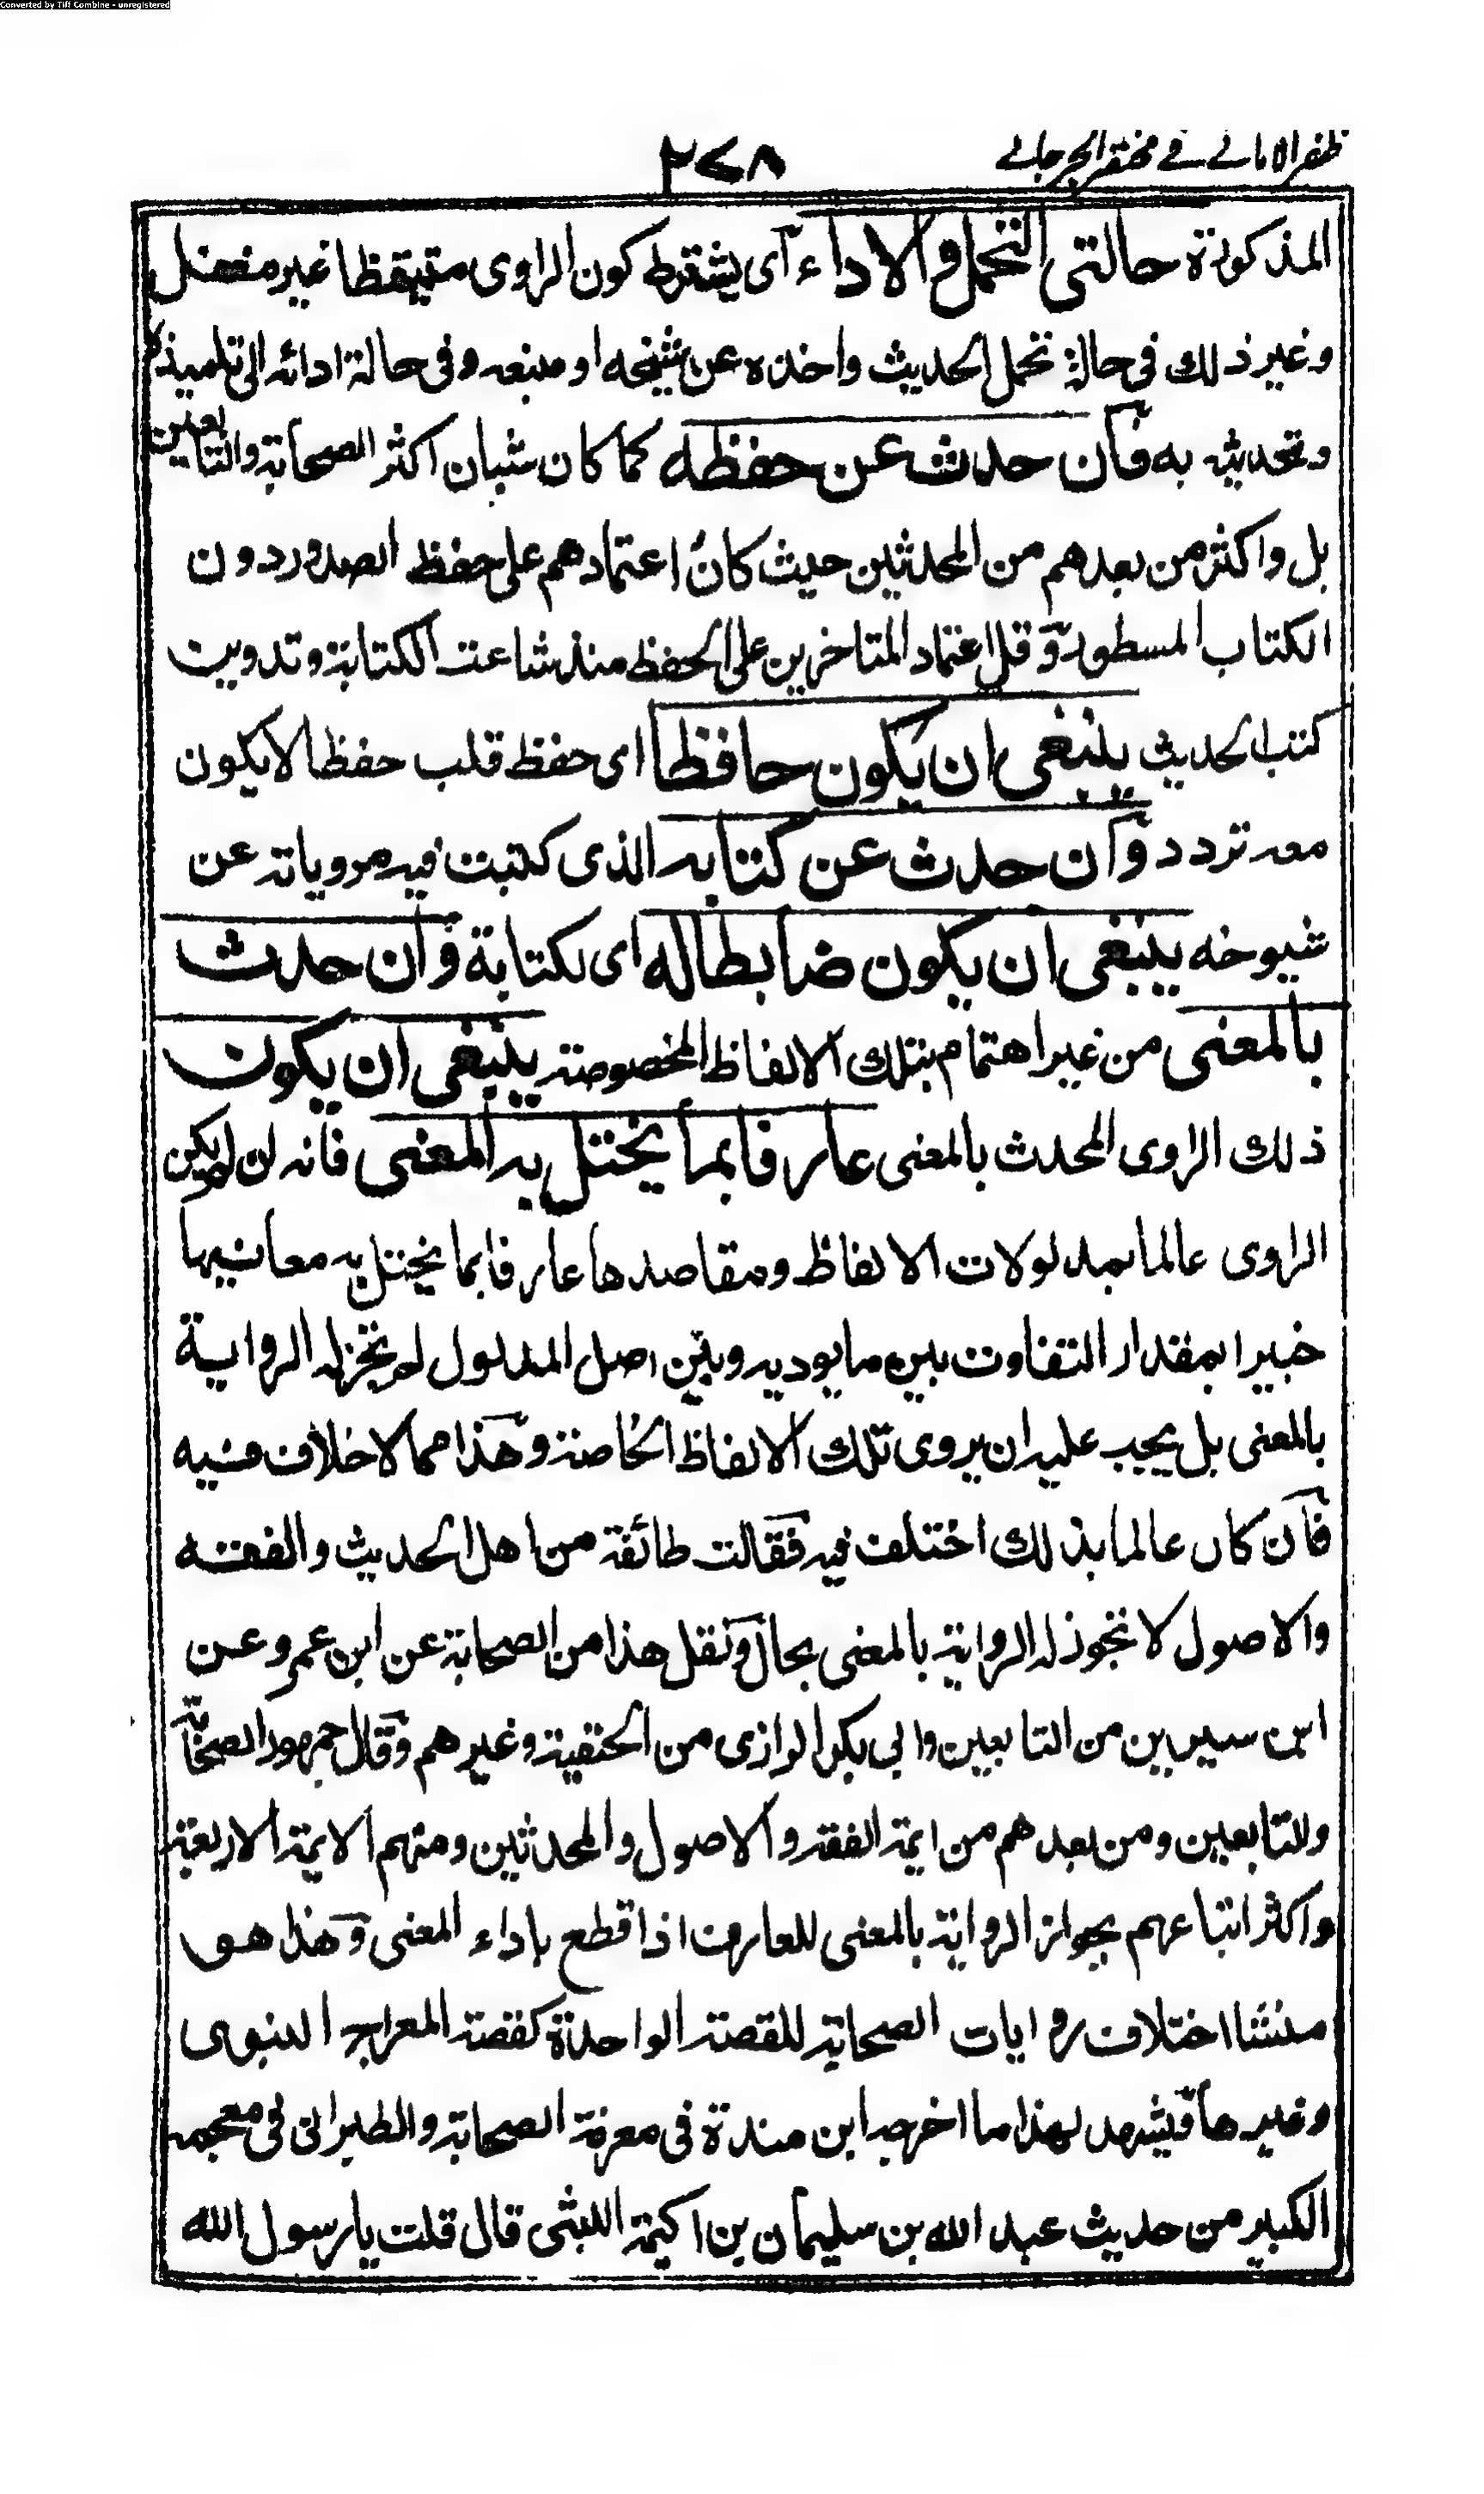 Converted by Tiff Combine - unregistered
ظفر الامانے فے مختصر الجرجانے
٢٧٨
المذكورة حالتى التحمل والاداء اى يشترط كون الراوى متيقظا غير مغفل
وغير ذلك فى حالة تحمل الحديث واخذه عن شيخه او منبعه وفى حالة ادائه الى تلميذه
وتحديثه به فان حدث عن حفظه كما كان شان اكثر الصحابة والتابعين
بل واكثر من بعدهم من المحدثين حيث كان اعتمادهم على حفظ الصدور دون
الكتاب المسطور وقل اعتماد المتاخرين على الحفظ منذ شاعت الكتابة وتدوين
كتب الحديث ينبغى ان يكون حافظا اى حفظ قلب حفظا لا يكون
معه تردد وان حدث عن كتابه الذى كتبت فيه مروياته عن
شيوخه ينبغى ان يكون ضابطا له اى لكتابة وان حدث
بالمعنى من غير اهتمام بتلك الالفاظ المخصوصة ينبغى ان يكون
ذلك الراوى المحدث بالمعنى عارفا بما يختل به المعنى فانه ان لم يكن
الراوى عالما بمدلولات الالفاظ ومقاصدها عارفا بما يختل به معانيها
خبيرا بمقدار التفاوت بين ما يوديه وبين اصل المدلول لم تجز له الرواية
بالمعنى بل يجب عليه ان يروى تلك الالفاظ الخاصة وهذا مما لا خلاف فيه
فان كان عالما بذلك اختلف فيه فقالت طائفة من اهل الحديث والفقه
والاصول لا تجوز له الرواية بالمعنى بحال ونقل هذا من الصحابة عن ابن عمر وعن
ابن سيرين من التابعين وابى بكر الرازى من الحنفية وغيرهم وقال جمهور الصحابة
والتابعين ومن بعدهم من ايمة الفقه والاصول والمحدثين ومنهم الايمة الاربعة
واكثر اتباعهم بجواز الرواية بالمعنى للعارف اذا قطع باداء المعنى وهذا هو
منشا اختلاف روايات الصحابة للقصة الواحدة كقصة المعراج النبوى
وغيرها ويشهد لهذا ما اخرجه ابن مندة فى معرفة الصحابة والطبرانى فى معجمه
الكبير من حديث عبد الله بن سليمان بن اكيمة الليثى قال قلت يا رسول الله